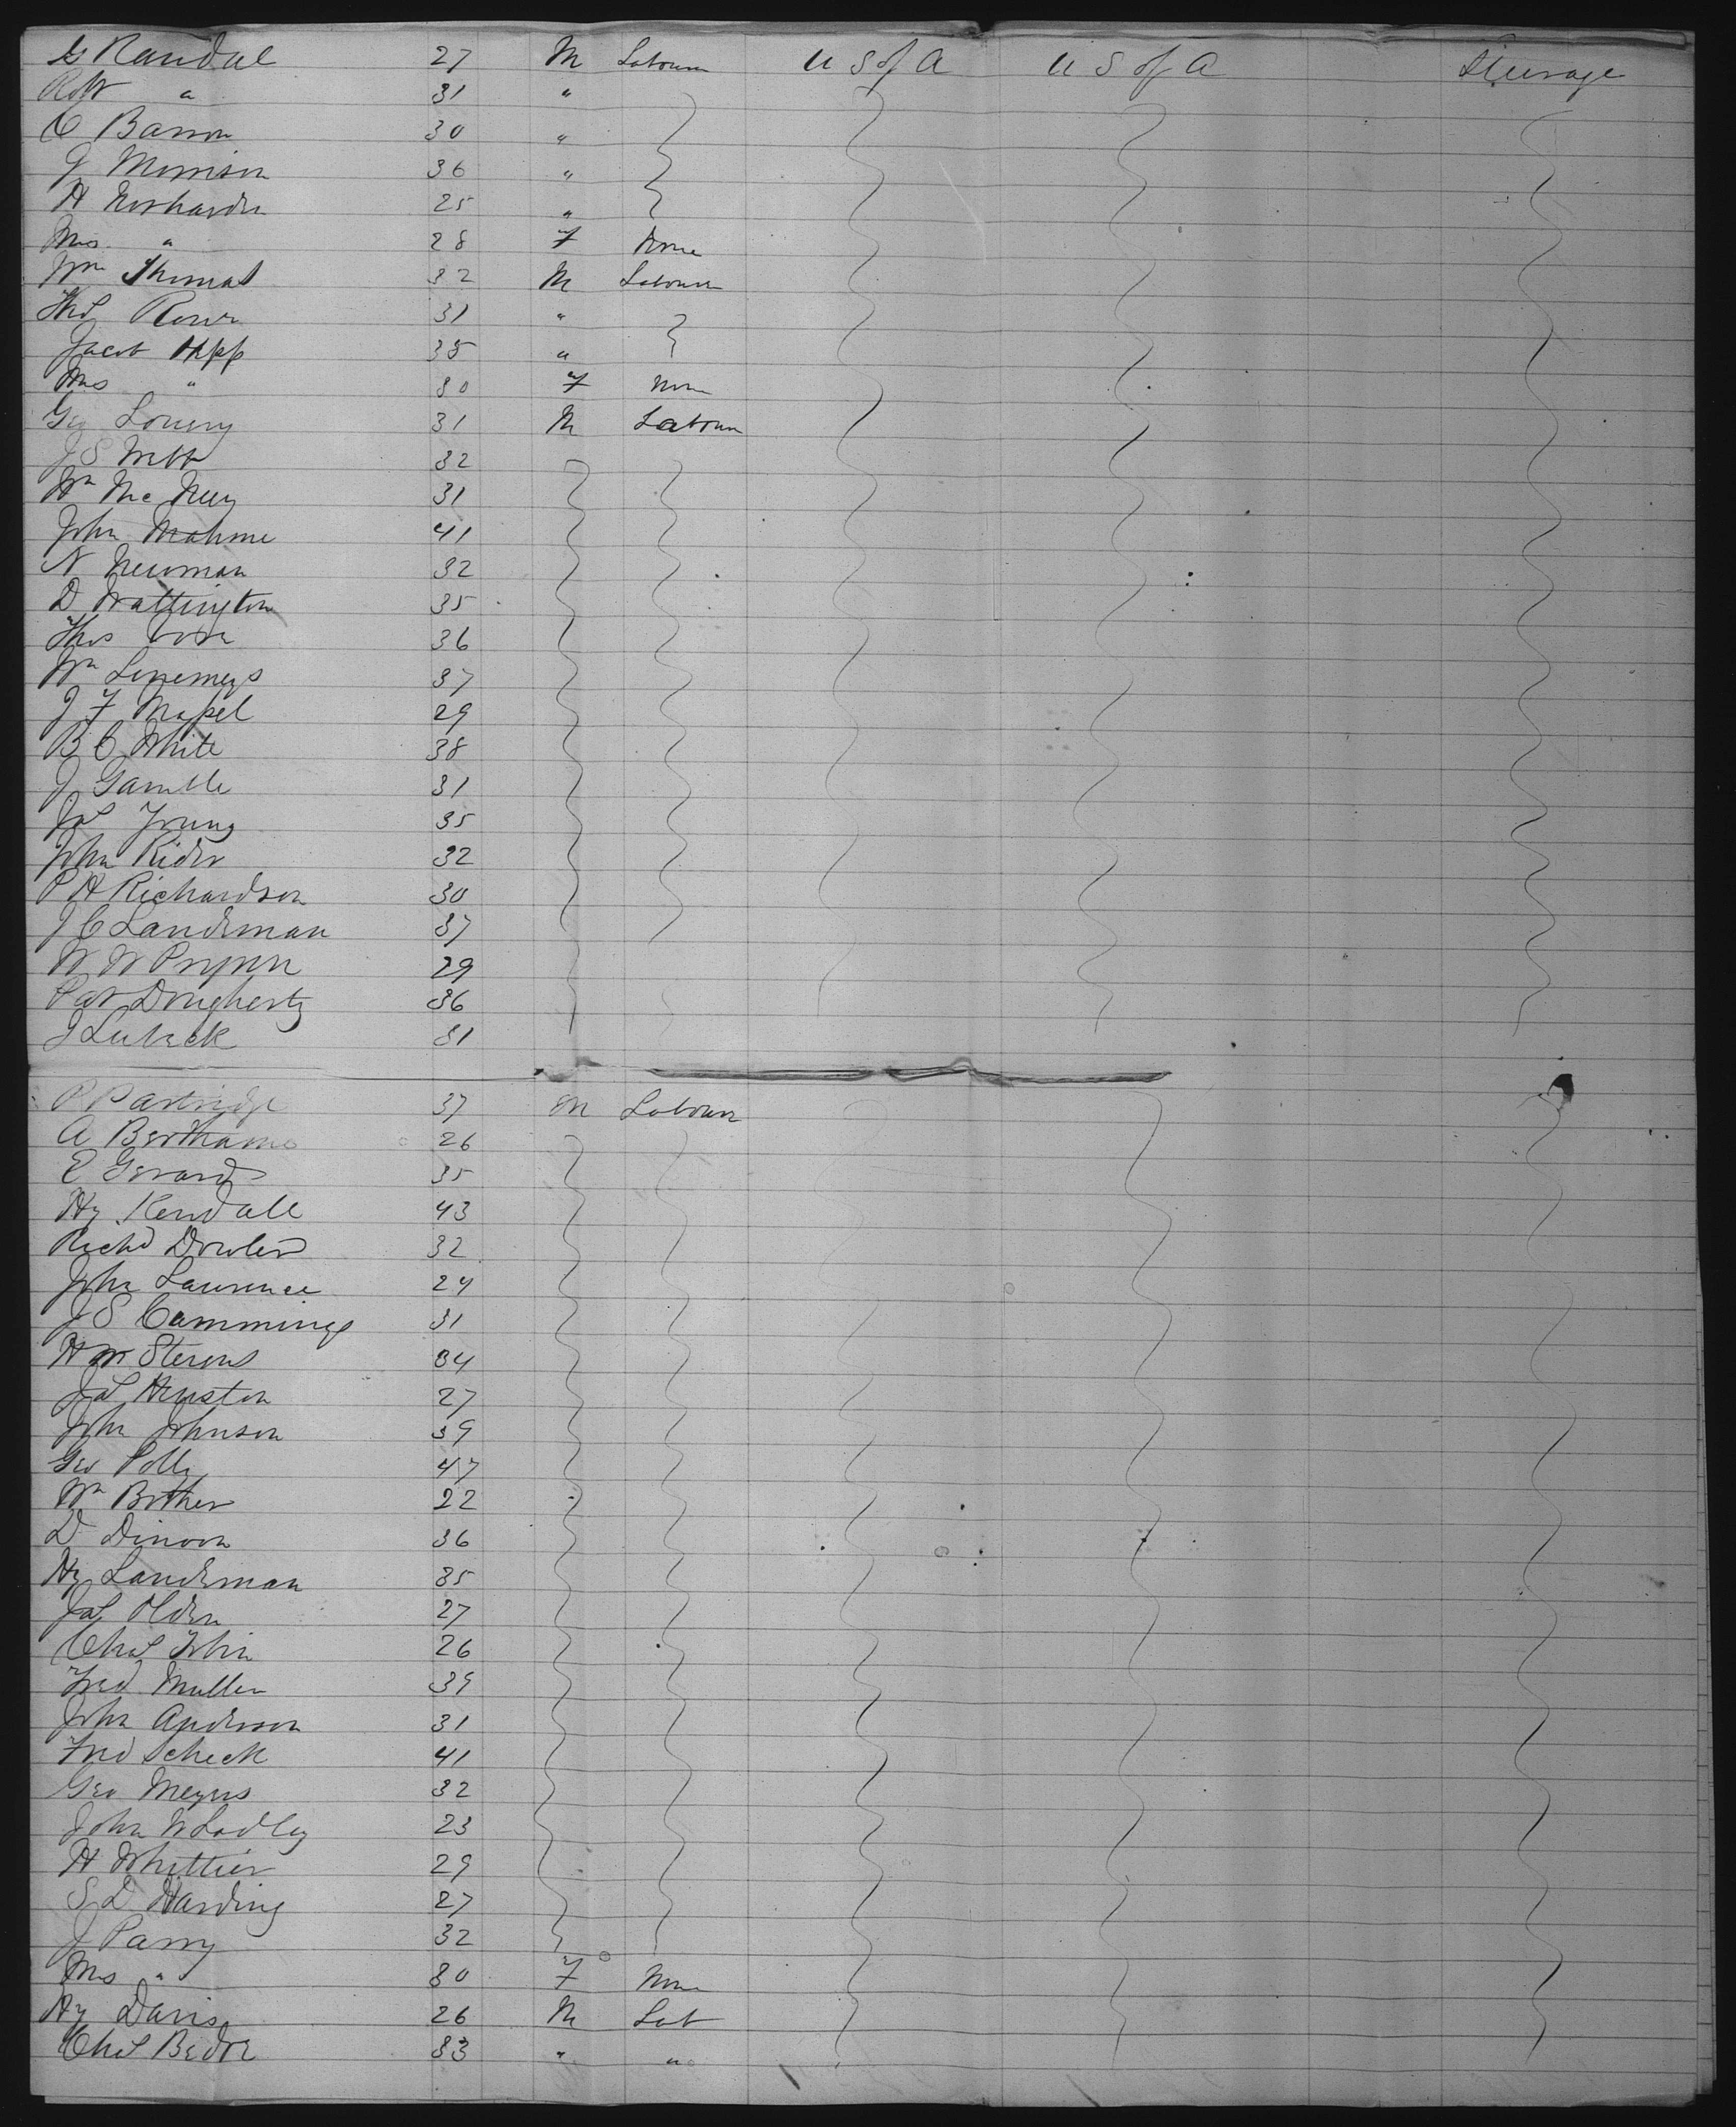 G Randal 27 M Labourer U S of A U S of A Steerage
Robt " 31 "
C Barron 30 "
J Morrison 36 "
H 25 "
Mrs " 28 F None
Wm Thomas 32 M Labourer
Thos Rower 31 "
Jacob Hipp 35 "
Mrs " 30 F None
Geo Lowery 31 M Labourer
J S Webb 32
Wm Mc Nury 31
John Mahme 41
N Newman 32
D Wattington 35
Thos 36
Wm 37
J F Mapel 29
B C White 38
J Gamble 31
Jas Young 35
John Rider 32
P H Richardson 30
J C Landsman 37
W W 29
Pat Dougherty 36
J Lubeck 31
P Partridge 37 M Labourer
A Berthame 26
E Gerard 35
Hy Kendall 43
Richd Dowler 32
John Lawrence 24
J S Cammings 31
H W Stevens 34
Jas Heuston 27
John Johnson 39
Geo Polly 47
Wm Bother 22
D Dinoon 36
Hy Landsman 35
Jas Olden 27
Chas Tobin 26
Fred Muller 39
John Anderson 31
Fred Scheck 41
Geo Meyers 32
John W Ladley 23
H Whittier 29
S D Harding 27
J Parry 32
Mrs " 30 F None
Hy Davis 26 M Lab
Chas Bedor 33 " "